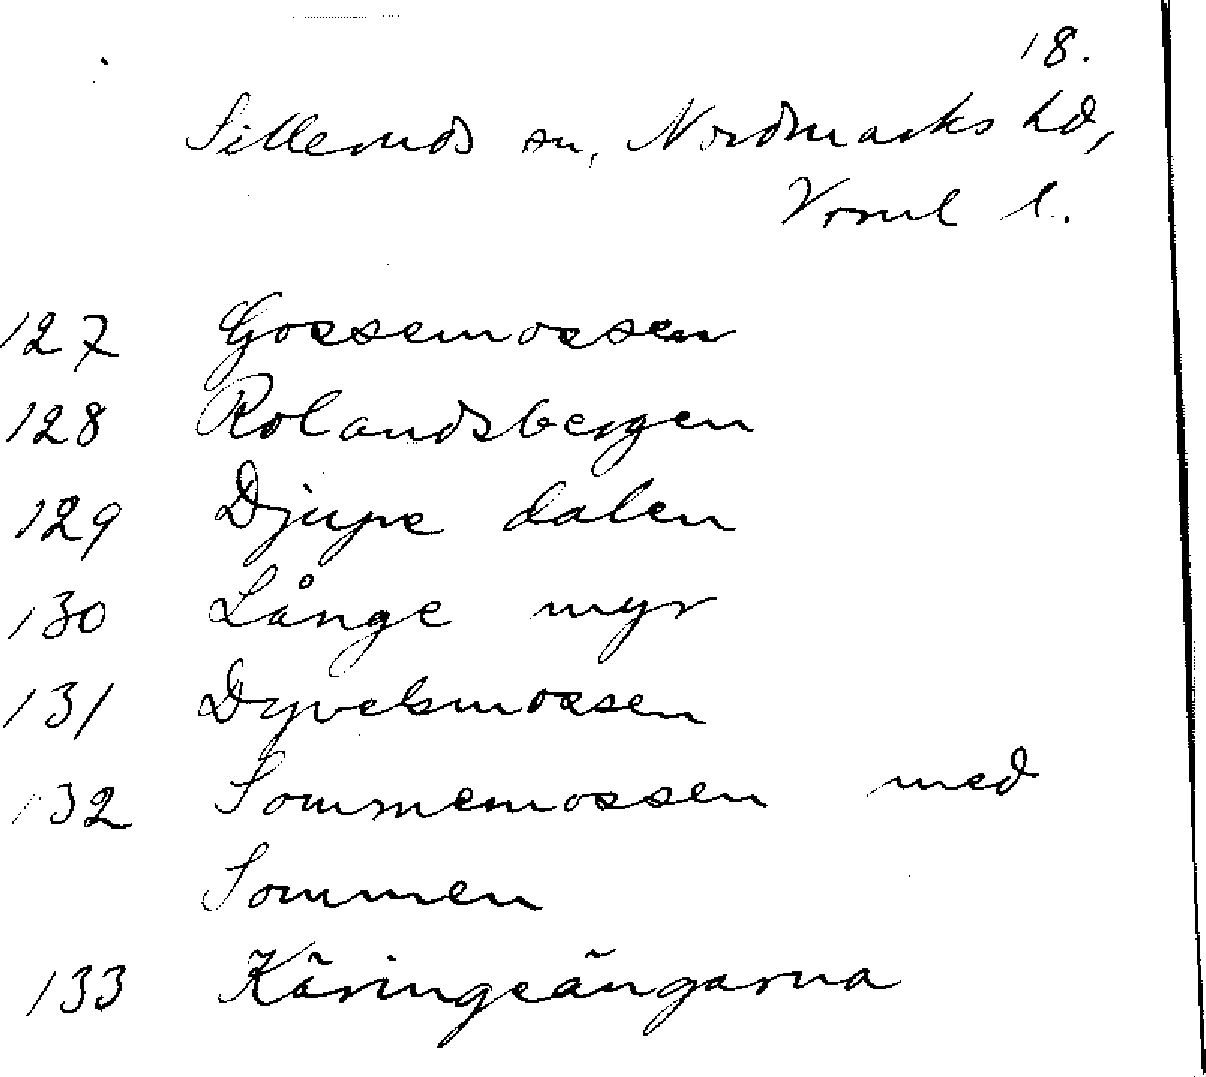 18.
Silleruds sn, Nordmarks hd,
Vrml l.
127 Gossemossen
128 Rolandsbergen
129 Djupe dalen
130 Långe myr
131 Dyvelsmossen
132 Sommemossen med
Sommen
133 Käringeängarna